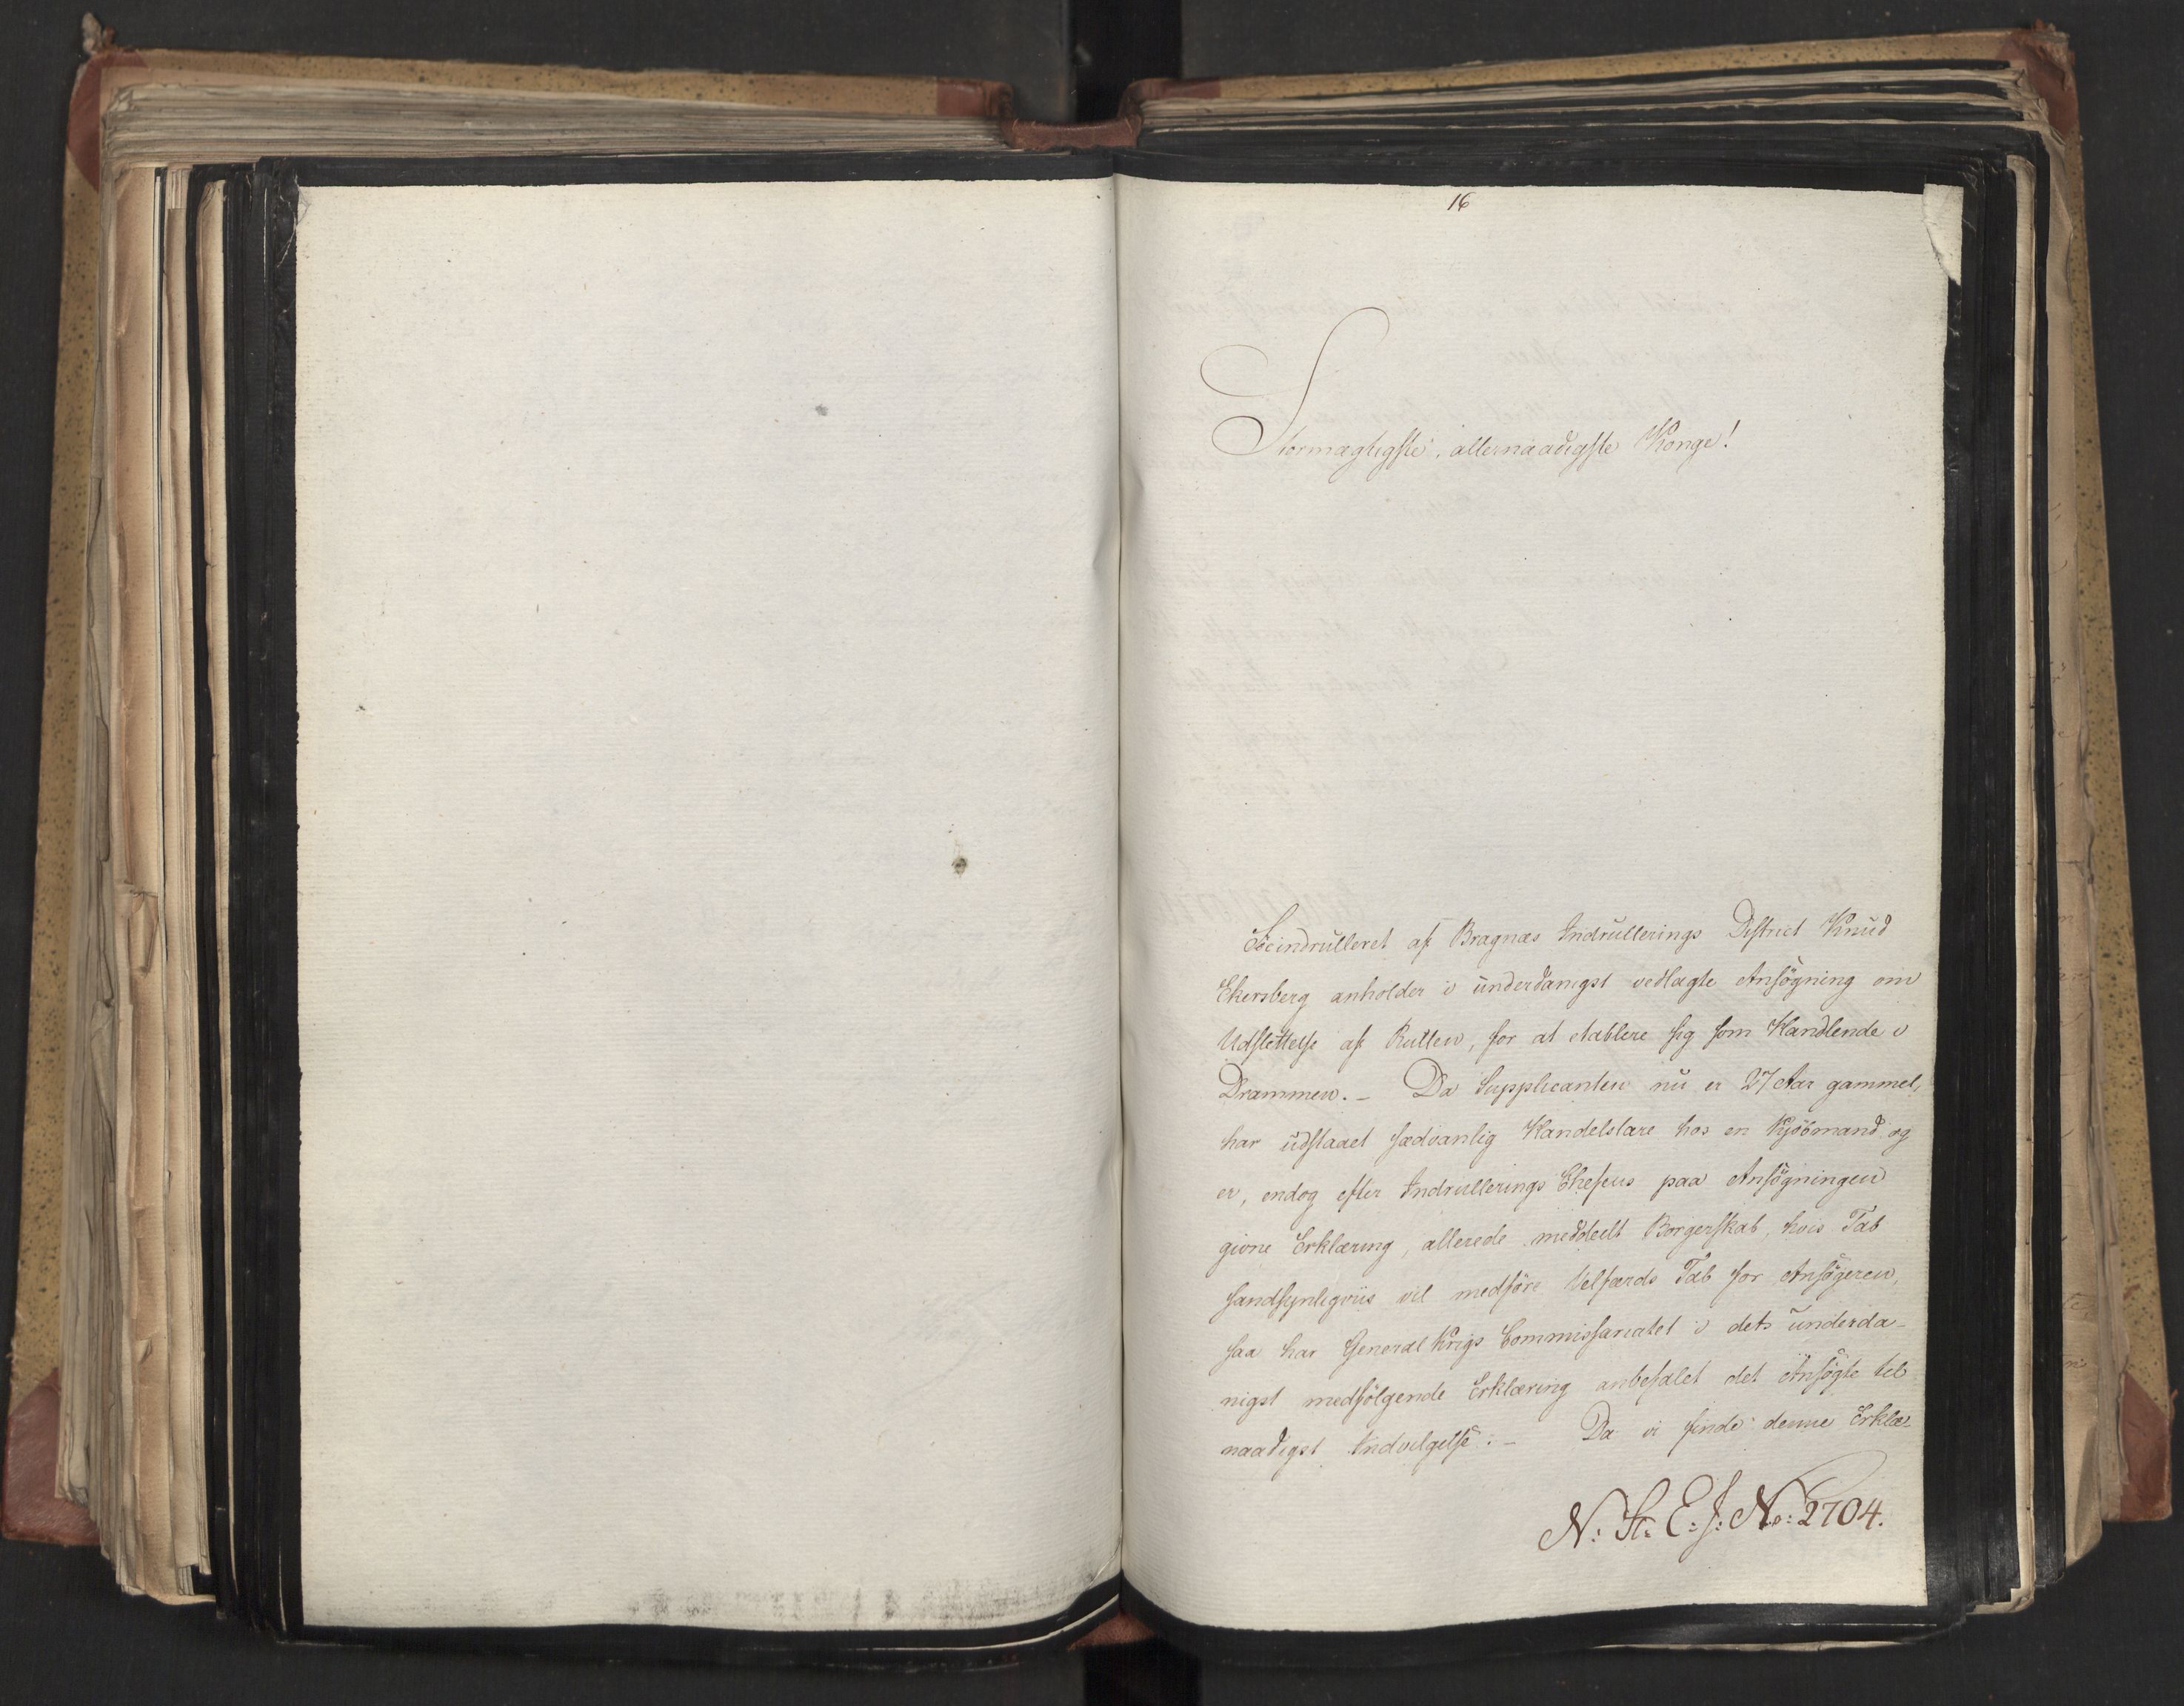 16
Stormægtigste, allernaadigste Konge!
Söeindrulleret af Bragnæs Indrullerings District Knud
Ekersberg anholder i underdanigst vedlagte Ansögning om
Udslettelse af Rullen, for at etablere sig som Handlende i
Drammen. _ Da Supplicanten nu er 27 Aar gammel,
har udstaaet sædvanlig Handelslære hos en Kjöbmand og
er, endog efter Indrullerings Chefens paa Ansögningen
givne Erklæring, allerede meddeelt Borgerskab, hvis Tab
sandsynligviis vil medföre Velfærds Tab for Ansögeren,
saa har General Krigs Commissariatet i dets underda-
nigst medfölgende Erklæring anbefalet det Ansögte til
naadigst Indvilgelse. _ Da vi finde denne Erklæ-
N: St: E: J: No: 2704.